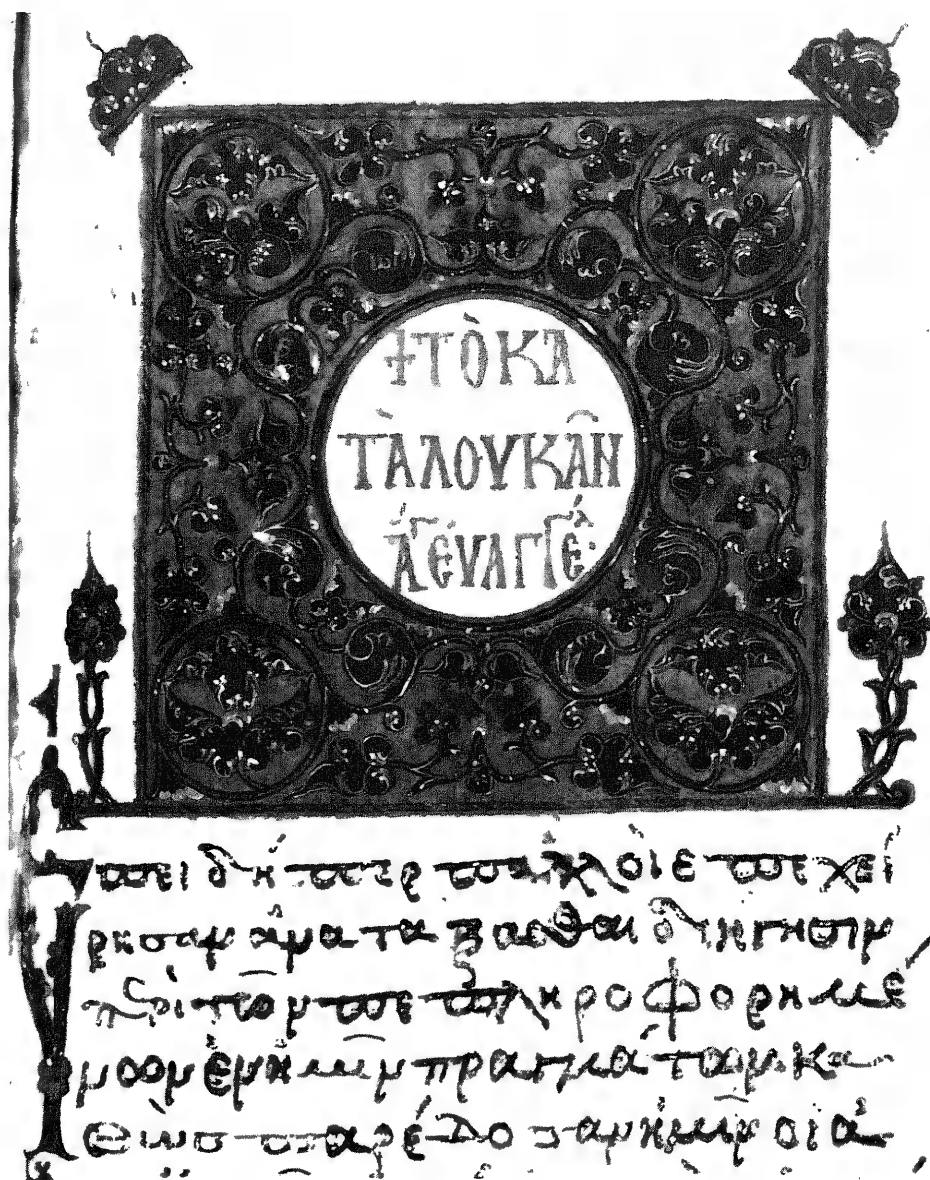 +ΤῸ ΚΑ
ΤᾺ ΛΟΥΚΑ͂Ν
ἍΓ ΕΥ̓ΑΓΓΈΛ·
Ἐπειδήπερ πολλοὶ ἐπεχεί
ρησαν ἀνατάξασθαι διήγησιν
περὶ τῶν πεπληροφορημέ
νων ἐν ἡμῖν πραγμάτων. κα
θὼς παρέδοσαν ἡμῖν οἱ ἀ